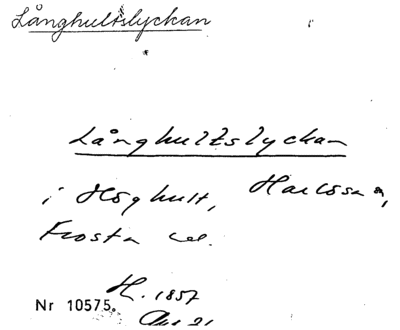 Långhultslyckan
Långhultslyckan
i Höghult, Harlösa s,
Frosta
H. 1857
Nr 10575.